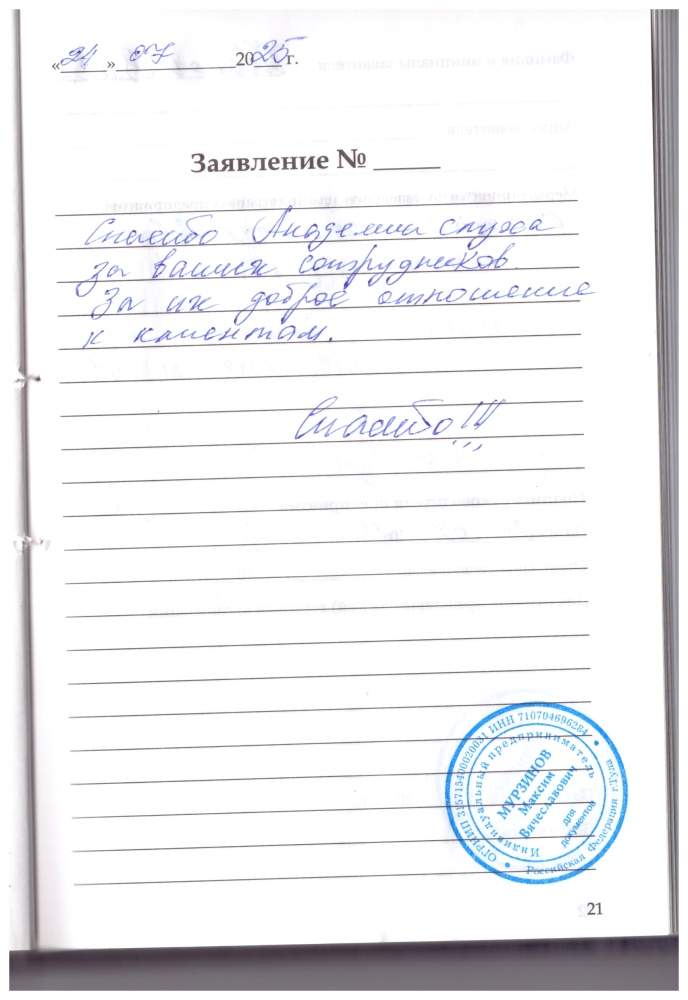 «24» 07 2025 г.
Заявление № ______
Спасибо Академии Слуха
за ваших сотрудников.
За их доброе отношение
к клиентам.
Спасибо!!!
ОГРНИП 315715400020031 ИНН 710704696284
Индивидуальный предприниматель
МУРЗИНОВ
Максим
Вячеславович
для
документов
Российская Федерация г.Тула
21